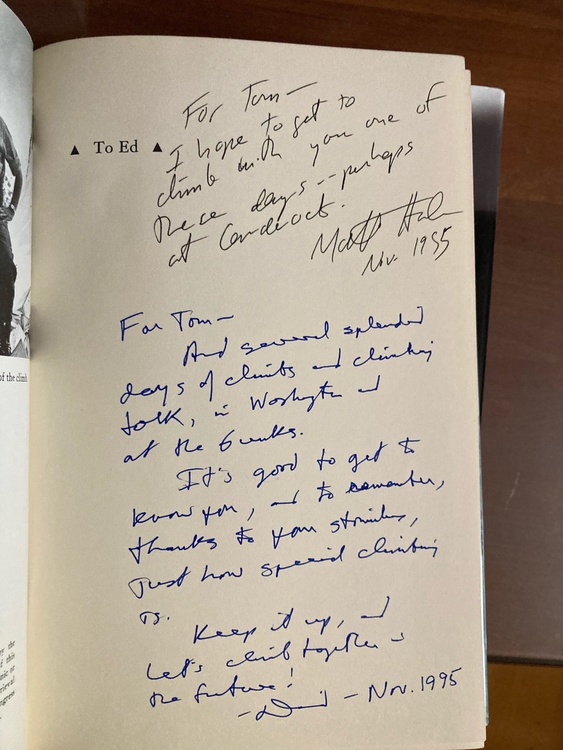 For Tom —
▲ To Ed ▲
I hope to get to
climb with you one of
these days -- perhaps
at Cathedral.
Matt Hale
Nov. 1995
For Tom —
And several splendid
days of climbs and climbing
talk, in Washington and
at the Gunks.
It's good to get to
know you, and to remember,
thanks to your stories,
just how special climbing
is.
Keep it up, and
let's climb together in
the future!
— David — Nov. 1995
of the climb
by the
of this
mic or